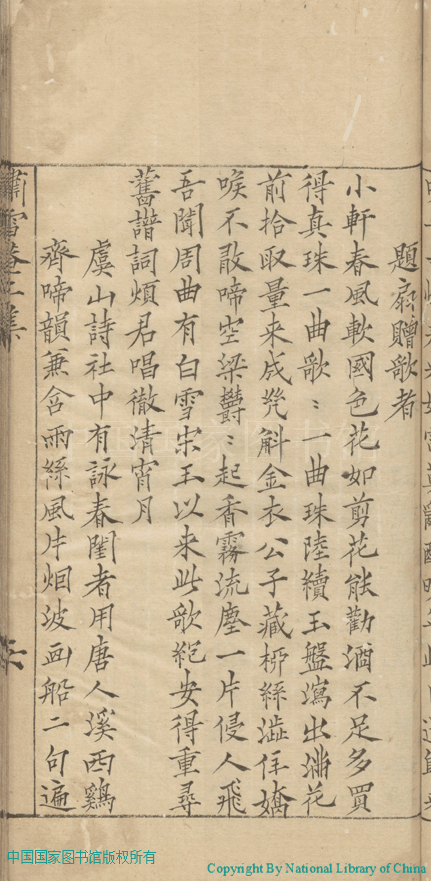 題扇贈歌者
小軒春風軟國色花如剪花能勸酒不足多買
得真珠一曲歌〻一曲珠陸續玉盤瀉出滿花
前拾取量來成幾斛金衣公子藏柳絲澁住嬌
喉不敢啼空梁鬱〻起香霧流塵一片侵人飛
吾聞周曲有白雪宋玉以來此歌絕安得重尋
舊譜詞煩君唱徹清宵月
虞山詩社中有詠春閨者用唐人溪西鷄
齊啼韻兼含雨絲風片烟波画船二句遍
集
六
中国国家图书馆版权所有
Copyright By National Library of China